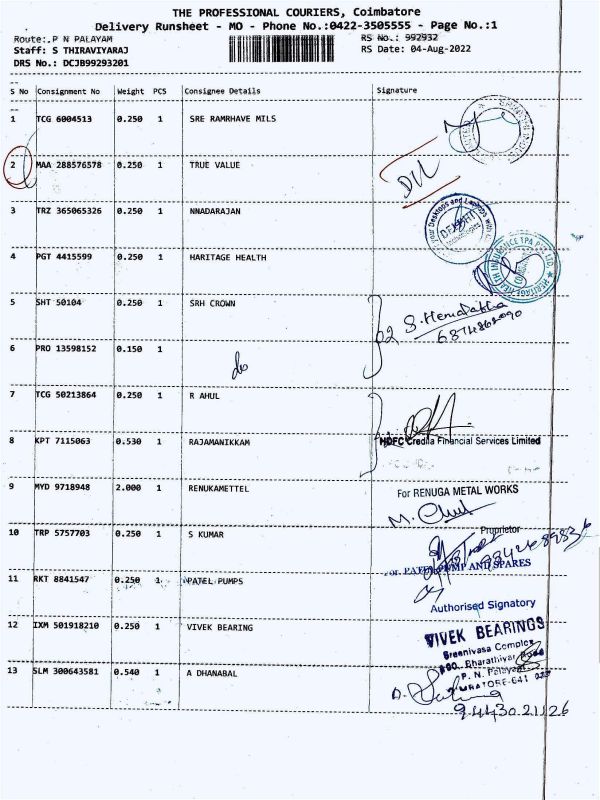 THE PROFESSIONAL COURIERS, Coimbatore
Delivery Runsheet - MO - Phone No.:0422-3505555 - Page No.:1
Route:. P N PALAYAM RS No.: 992932
Staff: S THIRAVIYARAJ RS Date: 04-Aug-2022
DRS No.: DCJB99293201
S No Consignment No Weight PCS Consignee Details Signature
1 TCG 6004513 0.250 1 SRE RAMRHAVE MILS
2 MAA 288576578 0.250 1 TRUE VALUE
3 TRZ 365065326 0.250 1 NNADARAJAN
your Desktops and Laptops with
4 PGT 4415599 0.250 1 HARITAGE HEALTH
HERITAGE HEALTH INSURANCE TPA PVT. LTD.
5 SHT 50104 0.250 1 SRH CROWN
02 S.Hemalatha
6 PRO 13598152 0.150 1
do
7 TCG 50213864 0.250 1 R AHUL
8 KPT 7115063 0.530 1 RAJAMANIKKAM HDFC Credila Financial Services Limited
9 MYD 9718948 2.000 1 RENUKAMETTEL For RENUGA METAL WORKS
Proprietor
10 TRP 5757703 0.250 1 S KUMAR
For. PATEL PUMP AND SPARES
11 RKT 8841547 0.250 1 PATEL PUMPS
Authorised Signatory
12 IXM 501918210 0.250 1 VIVEK BEARING VIVEK BEARINGS
Sreenivasa Complex
Bharathiyar Road
13 SLM 300643581 0.540 1 A DHANABAL P. N. Palayam
9443021126